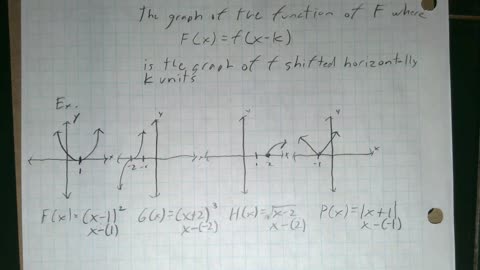 The graph of the function of F where
F(x) = f(x-k)
is the graph of f shifted horizontally
k units
Ex.
y y y y
1 x -2 -1 x 1 2 x -1 x
F(x) = (x-1)² G(x) = (x+2)³ H(x) = √x-2 P(x) = |x+1|
x-(1) x-(-2) x-(2) x-(-1)